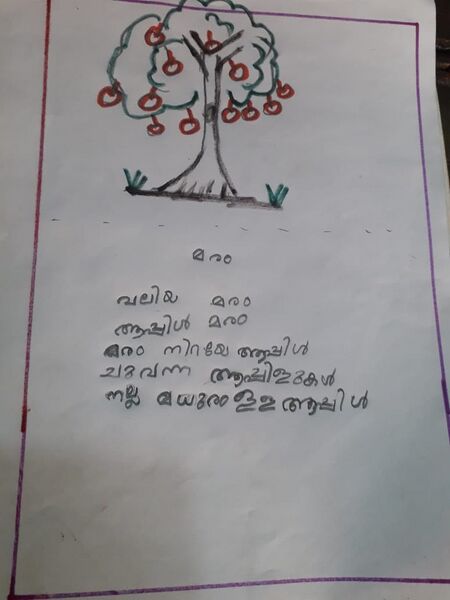 മരം
വലിയ മരം
ആപ്പിൾ മരം
മരം നിറയേ ആപ്പിൾ
ചുവന്ന ആപ്പിളുകൾ
നല്ല മധുരം ഉള്ള ആപ്പിൾ